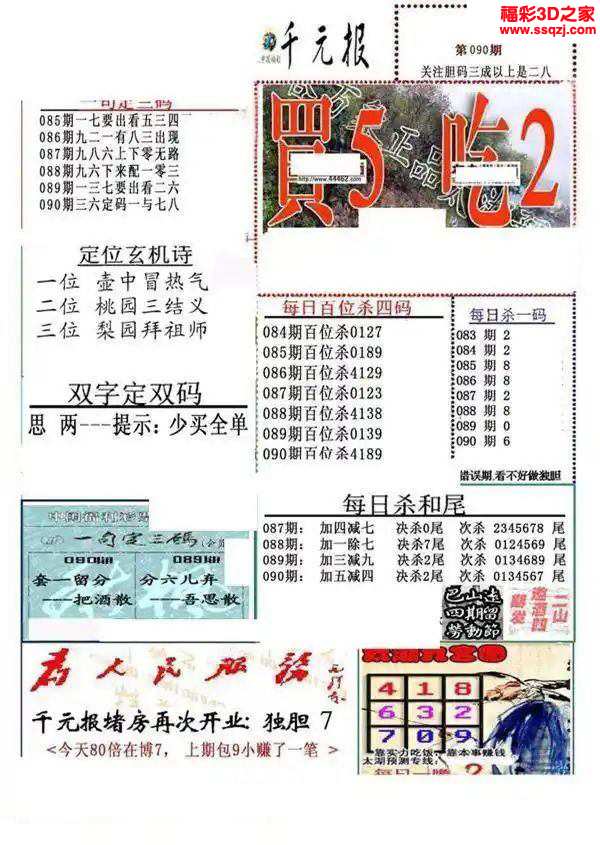 福彩3D之家
www.ssqzj.com
千元报
第090期
关注胆码三成以上是二八
一句定三码
085期一七要出看五三四
086期九二一有八三出现
087期九八六上下零无路
088期九六下来配一零三
089期一三七要出看二六
090期三六定码一与七八
買5 吃2
http://www.44462.com
定位玄机诗
一位 壶中冒热气
二位 桃园三结义
三位 梨园拜祖师
每日百位杀四码
084期百位杀0127
085期百位杀0189
086期百位杀4129
087期百位杀0123
088期百位杀4138
089期百位杀0139
090期百位杀4189
每日杀一码
083 期 2
084 期 2
085 期 8
086 期 8
087 期 2
088 期 8
089 期 0
090 期 6
错误期,看不好做独胆
双字定双码
思 两---提示:少买全单
每日杀和尾
087期: 加四减七 决杀0尾 次杀 2345678 尾
088期: 加一除七 决杀7尾 次杀 0124569 尾
089期: 加三减九 决杀2尾 次杀 0134689 尾
090期: 加五减四 决杀2尾 次杀 0134567 尾
一句定三码
090期 089期
套一留分 分六儿弃
一把酒散 一吾思散
巴山连
四期留
劳動節
二山
为人民服务
千元报堵房再次开业: 独胆 7
<今天80倍在博7, 上期包9小赚了一笔 >
4 1 8
6 3 2
7 0 9
靠实力吃饭, 靠本事赚钱
太湖预测专线:
每日一赠 2